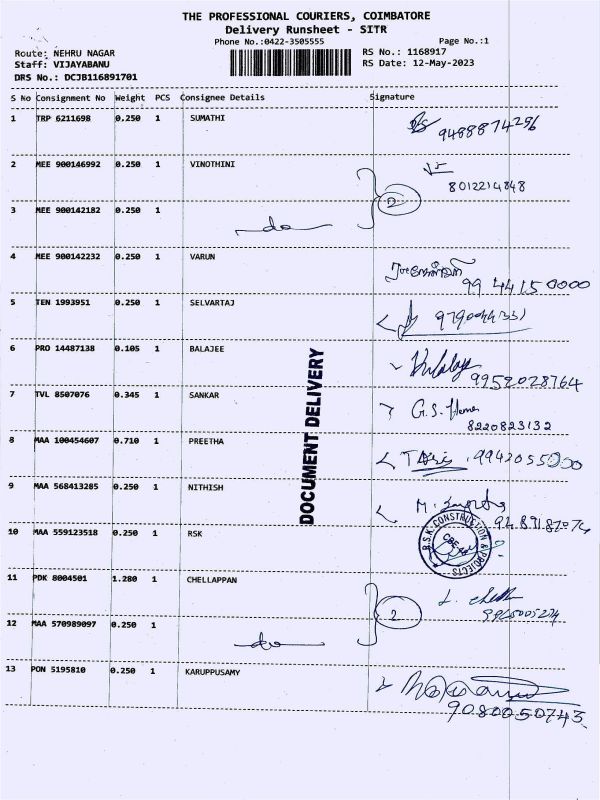 THE PROFESSIONAL COURIERS, COIMBATORE
Delivery Runsheet - SITR
Phone No.:0422-3505555 Page No.:1
Route: NEHRU NAGAR RS No.: 1168917
Staff: VIJAYABANU RS Date: 12-May-2023
DRS No.: DCJB116891701
S No Consignment No Weight PCS Consignee Details Signature
1 TRP 6211698 0.250 1 SUMATHI
9488874296
2 MEE 900146992 0.250 1 VINOTHINI
8012214848
3 MEE 900142182 0.250 1
do 2
4 MEE 900142232 0.250 1 VARUN
99 44150000
5 TEN 1993951 0.250 1 SELVARTAJ
6 PRO 14487138 0.105 1 BALAJEE
9952028764
7 TVL 8507076 0.345 1 SANKAR
G.S.
8220823132
8 MAA 100454607 0.710 1 PREETHA
9942055000
9 MAA 568413285 0.250 1 NITHISH
M.
10 MAA 559123518 0.250 1 RSK
R.S.K. CONSTRUCTION & PROJECTS
CBE
11 PDK 8004501 1.280 1 CHELLAPPAN
12 MAA 570989097 0.250 1
do 2
13 PON 5195810 0.250 1 KARUPPUSAMY
9080050743
DOCUMENT DELIVERY